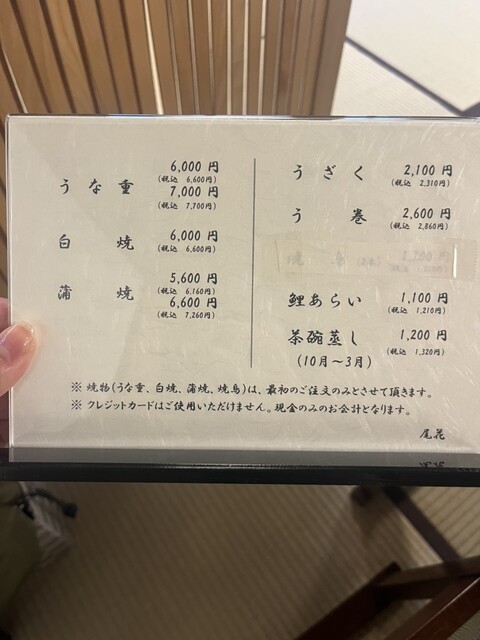 うな重 6,000 円
(税込 6,600円)
7,000 円
(税込 7,700円)
白焼 6,000 円
(税込 6,600円)
蒲焼 5,600 円
(税込 6,160円)
6,600 円
(税込 7,260円)
うざく 2,100 円
(税込 2,310円)
う巻 2,600 円
(税込 2,860円)
焼鳥
鯉あらい 1,100 円
(税込 1,210円)
茶碗蒸し 1,200 円
(10月～3月) (税込 1,320円)
※ 焼物(うな重、白焼、蒲焼、焼鳥)は、最初のご注文のみとさせて頂きます。
※ クレジットカードはご使用いただけません。現金のみのお会計となります。
尾花